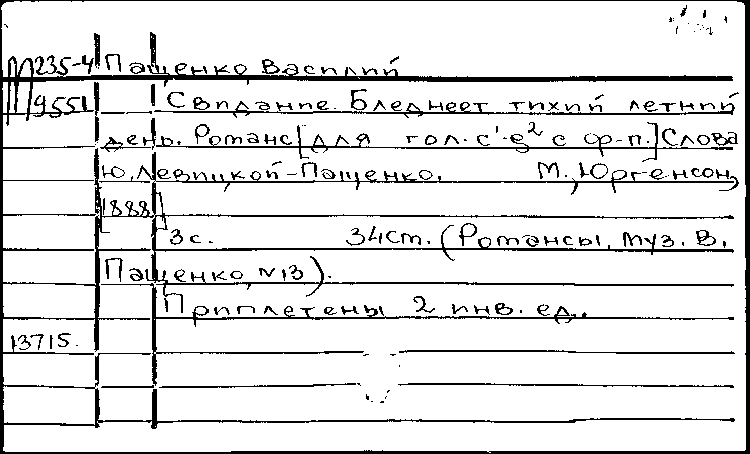 М235-4 Пащенко, Василий
9551 Свидание. Бледнеет тихий летний
день. Романс [для гол. c¹-g² с ф-п.] Слова
Ю. Левицкой-Пащенко. М., Юргенсон,
[1888]
3с. 34см. (Романсы, муз. В.
Пащенко, №13).
Приплетены 2 инв. ед.
13715.